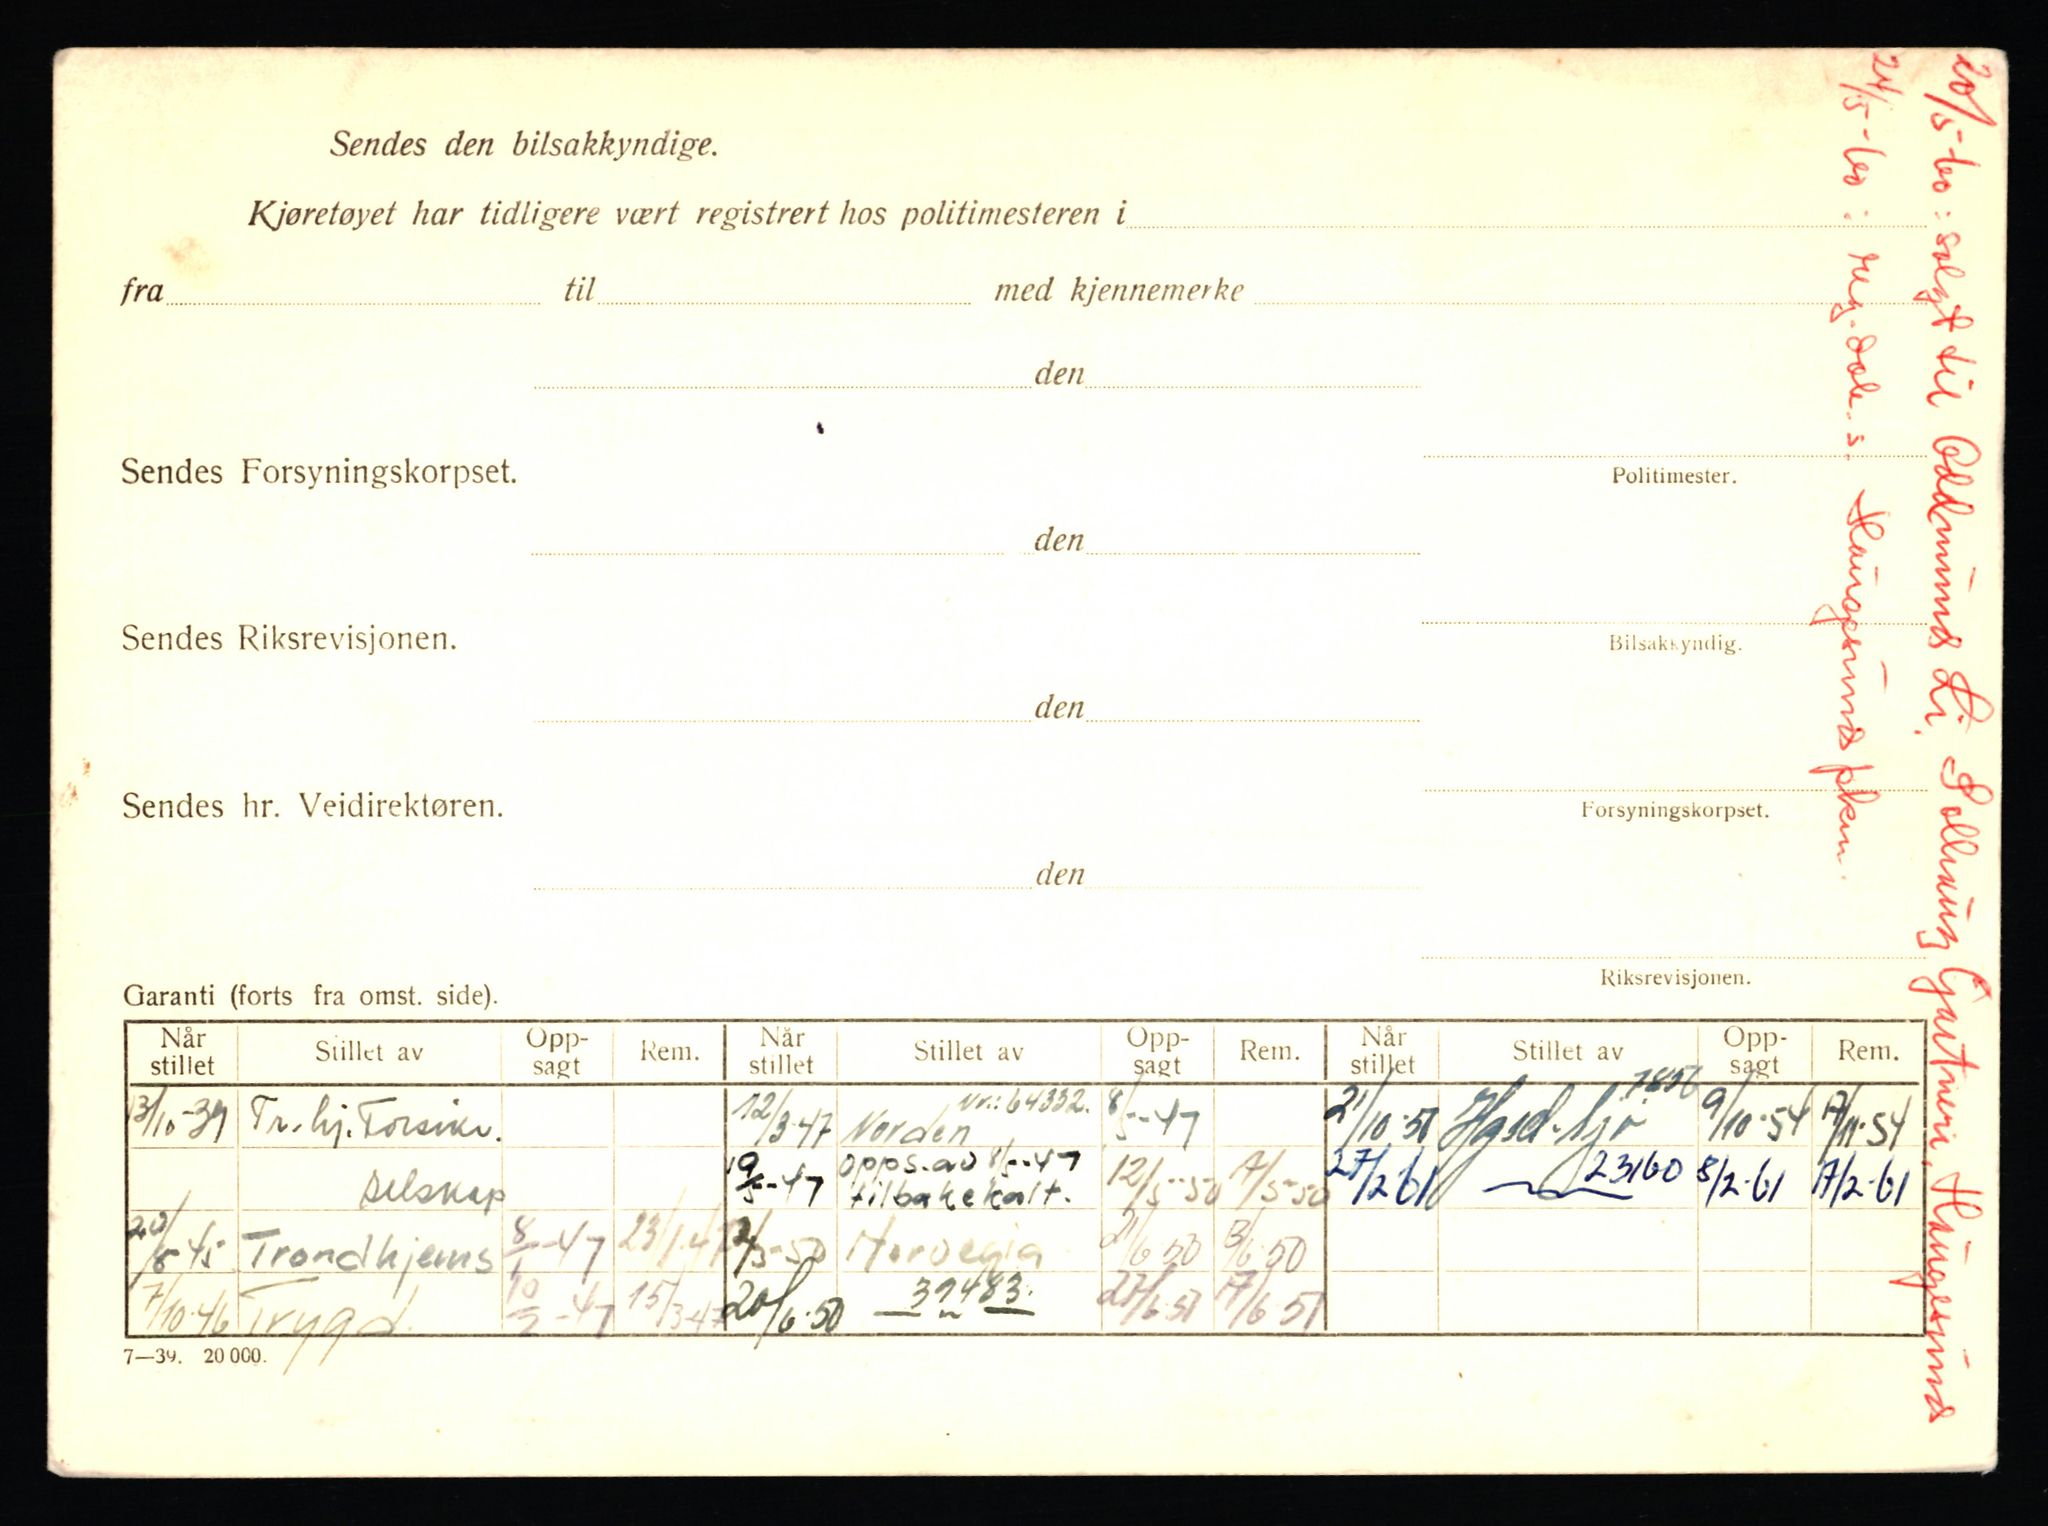 Sendes den bilsakkyndige.
Kjøretøyet har tidligere vært registrert hos politimesteren i
fra til med kjennemerke
den
Sendes Forsyningskorpset.
Politimester.
den
Sendes Riksrevisjonen.
Bilsakkyndig.
den
Sendes hr. Veidirektøren.
Forsyningskorpset.
den
Riksrevisjonen.
20/5-60: solgt til Oddmund Li, Solhaug Gartneri, Haugesund
24/5-60: reg. dok. s. Haugesund pkm.
Garanti (forts fra omst. side).
Når stillet Stillet av Opp-sagt Rem. Når stillet Stillet av Opp-sagt Rem. Når stillet Stillet av Opp-sagt Rem.
13/10-39 Tr.hj. Forsikr. 12/3-47 Norden Nr.: 64332. 8/5-47 21/10-50 7850 9/10-54 17/11-54
selskap 19/5-47 Opps. av 8/5-47 tilbakekalt. 12/5-50 17/5-50 27/2-61 23160 8/2-61 17/2-61
20/8-45 Trondhjems 8/1-47 23/1-47 Norvegia 21/6-50 3/6-50
7/10-46 Trygd. 10/3-47 15/3-47 20/6-50 39483. 27/6-51 17/6-51
7—39. 20 000.